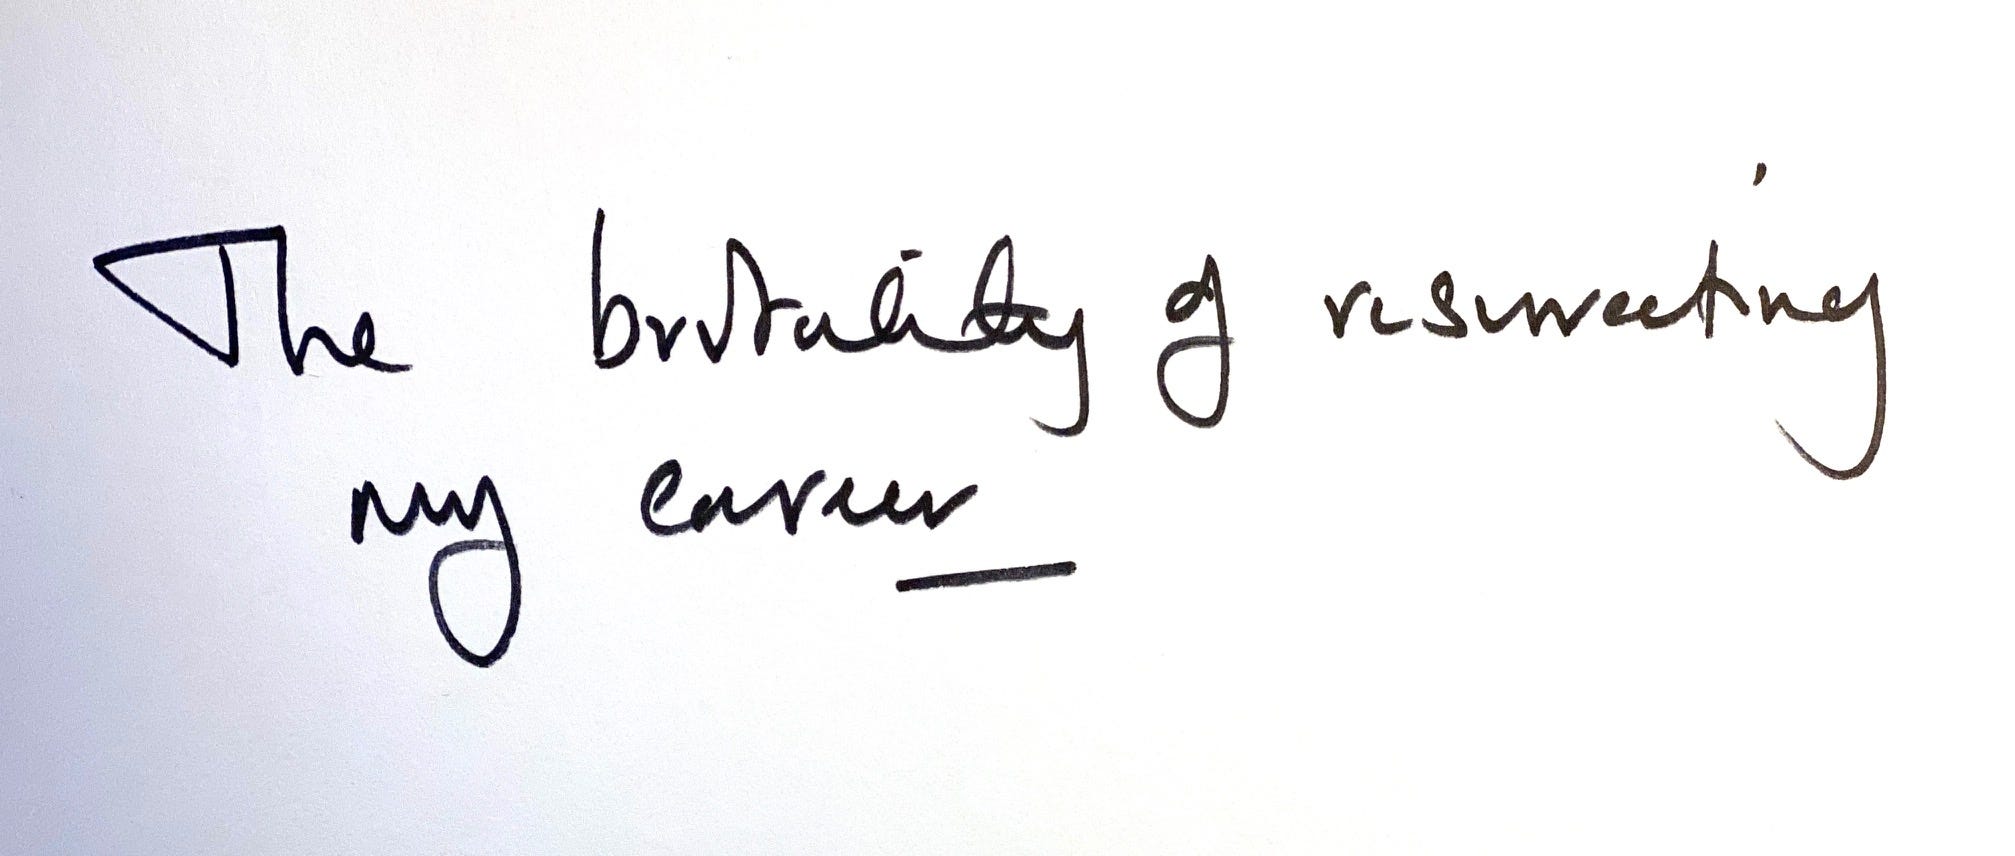 The brutality of resurrecting
my career